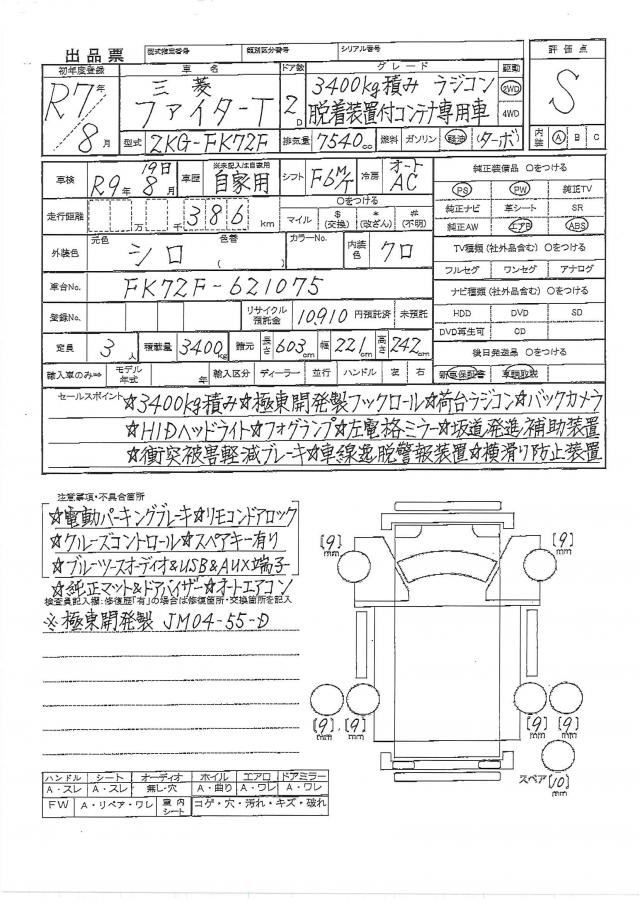 出品票 型式指定番号 類別区分番号 シリアル番号 評価点
初年度登録 車名 ドア数 グレード 駆動
R7年 三菱 2D 3400kg積み ラジコン 2WD S
8月 ファイターT 脱着装置付コンテナ専用車 4WD
型式 2KG-FK72F 排気量 7540cc 燃料 ガソリン 軽油 (ターボ) 内装 A B C
車検 R9年 19日 8月 車歴 ※未記入は自家用 自家用 シフト F6M/T 冷房 オートAC 純正装備品 ○をつける
PS PW 純正TV
走行距離 万 千 386 km ○をつける マイル $(交換) *(改ざん) #(不明) 純正ナビ 革シート SR
純正AW エアB ABS
外装色 元色 シロ 色替 ( ) カラーNo. 内装色 クロ TV種類(社外品含む) ○をつける
フルセグ ワンセグ アナログ
車台No. FK72F-621075 ナビ種類(社外品含む) ○をつける
登録No. リサイクル預託金 10,910 円預託済 未預託 HDD DVD SD
DVD再生可 CD
定員 3人 積載量 3400kg 諸元 長さ 603cm 幅 221cm 高さ 242cm 後日発送品 ○をつける
輸入車のみ⇒ モデル年式 年 輸入区分 ディーラー 並行 ハンドル 左 右 新車保証書 車輌取説
セールスポイント ☆3400kg積み☆極東開発製フックロール☆荷台ラジコン☆バックカメラ
☆HIDヘッドライト☆フォグランプ☆左電格ミラー☆坂道発進補助装置
☆衝突被害軽減ブレーキ☆車線逸脱警報装置☆横滑り防止装置
注意事項・不具合箇所
☆電動パーキングブレーキ☆リモコンドアロック
☆クルーズコントロール☆スペアキー有り
☆ブルーツースオーディオ&USB&AUX端子
☆純正マット&ドアバイザー☆オートエアコン
検査員記入欄:修復歴「有」の場合は修復箇所・交換箇所を記入
※極東開発製 JM04-55-D
[9]mm [9]mm
[9]mm [9]mm [9]mm [9]mm
スペア [10]mm
ハンドル シート オーディオ ホイル エアロ ドアミラー
A・スレ A・スレ 無し・穴 A・曲り A・ワレ A・ワレ
FW A・リペア・ワレ 室内シート コゲ・穴・汚れ・キズ・破れ